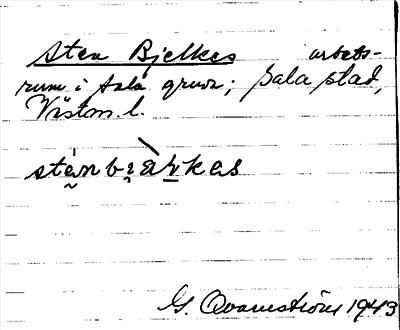 Sten Bjelkes arbets-
rum i Sala gruva; Sala stad,
Västm. l.
stánbiàɫkas
G. Qvarnström 1943